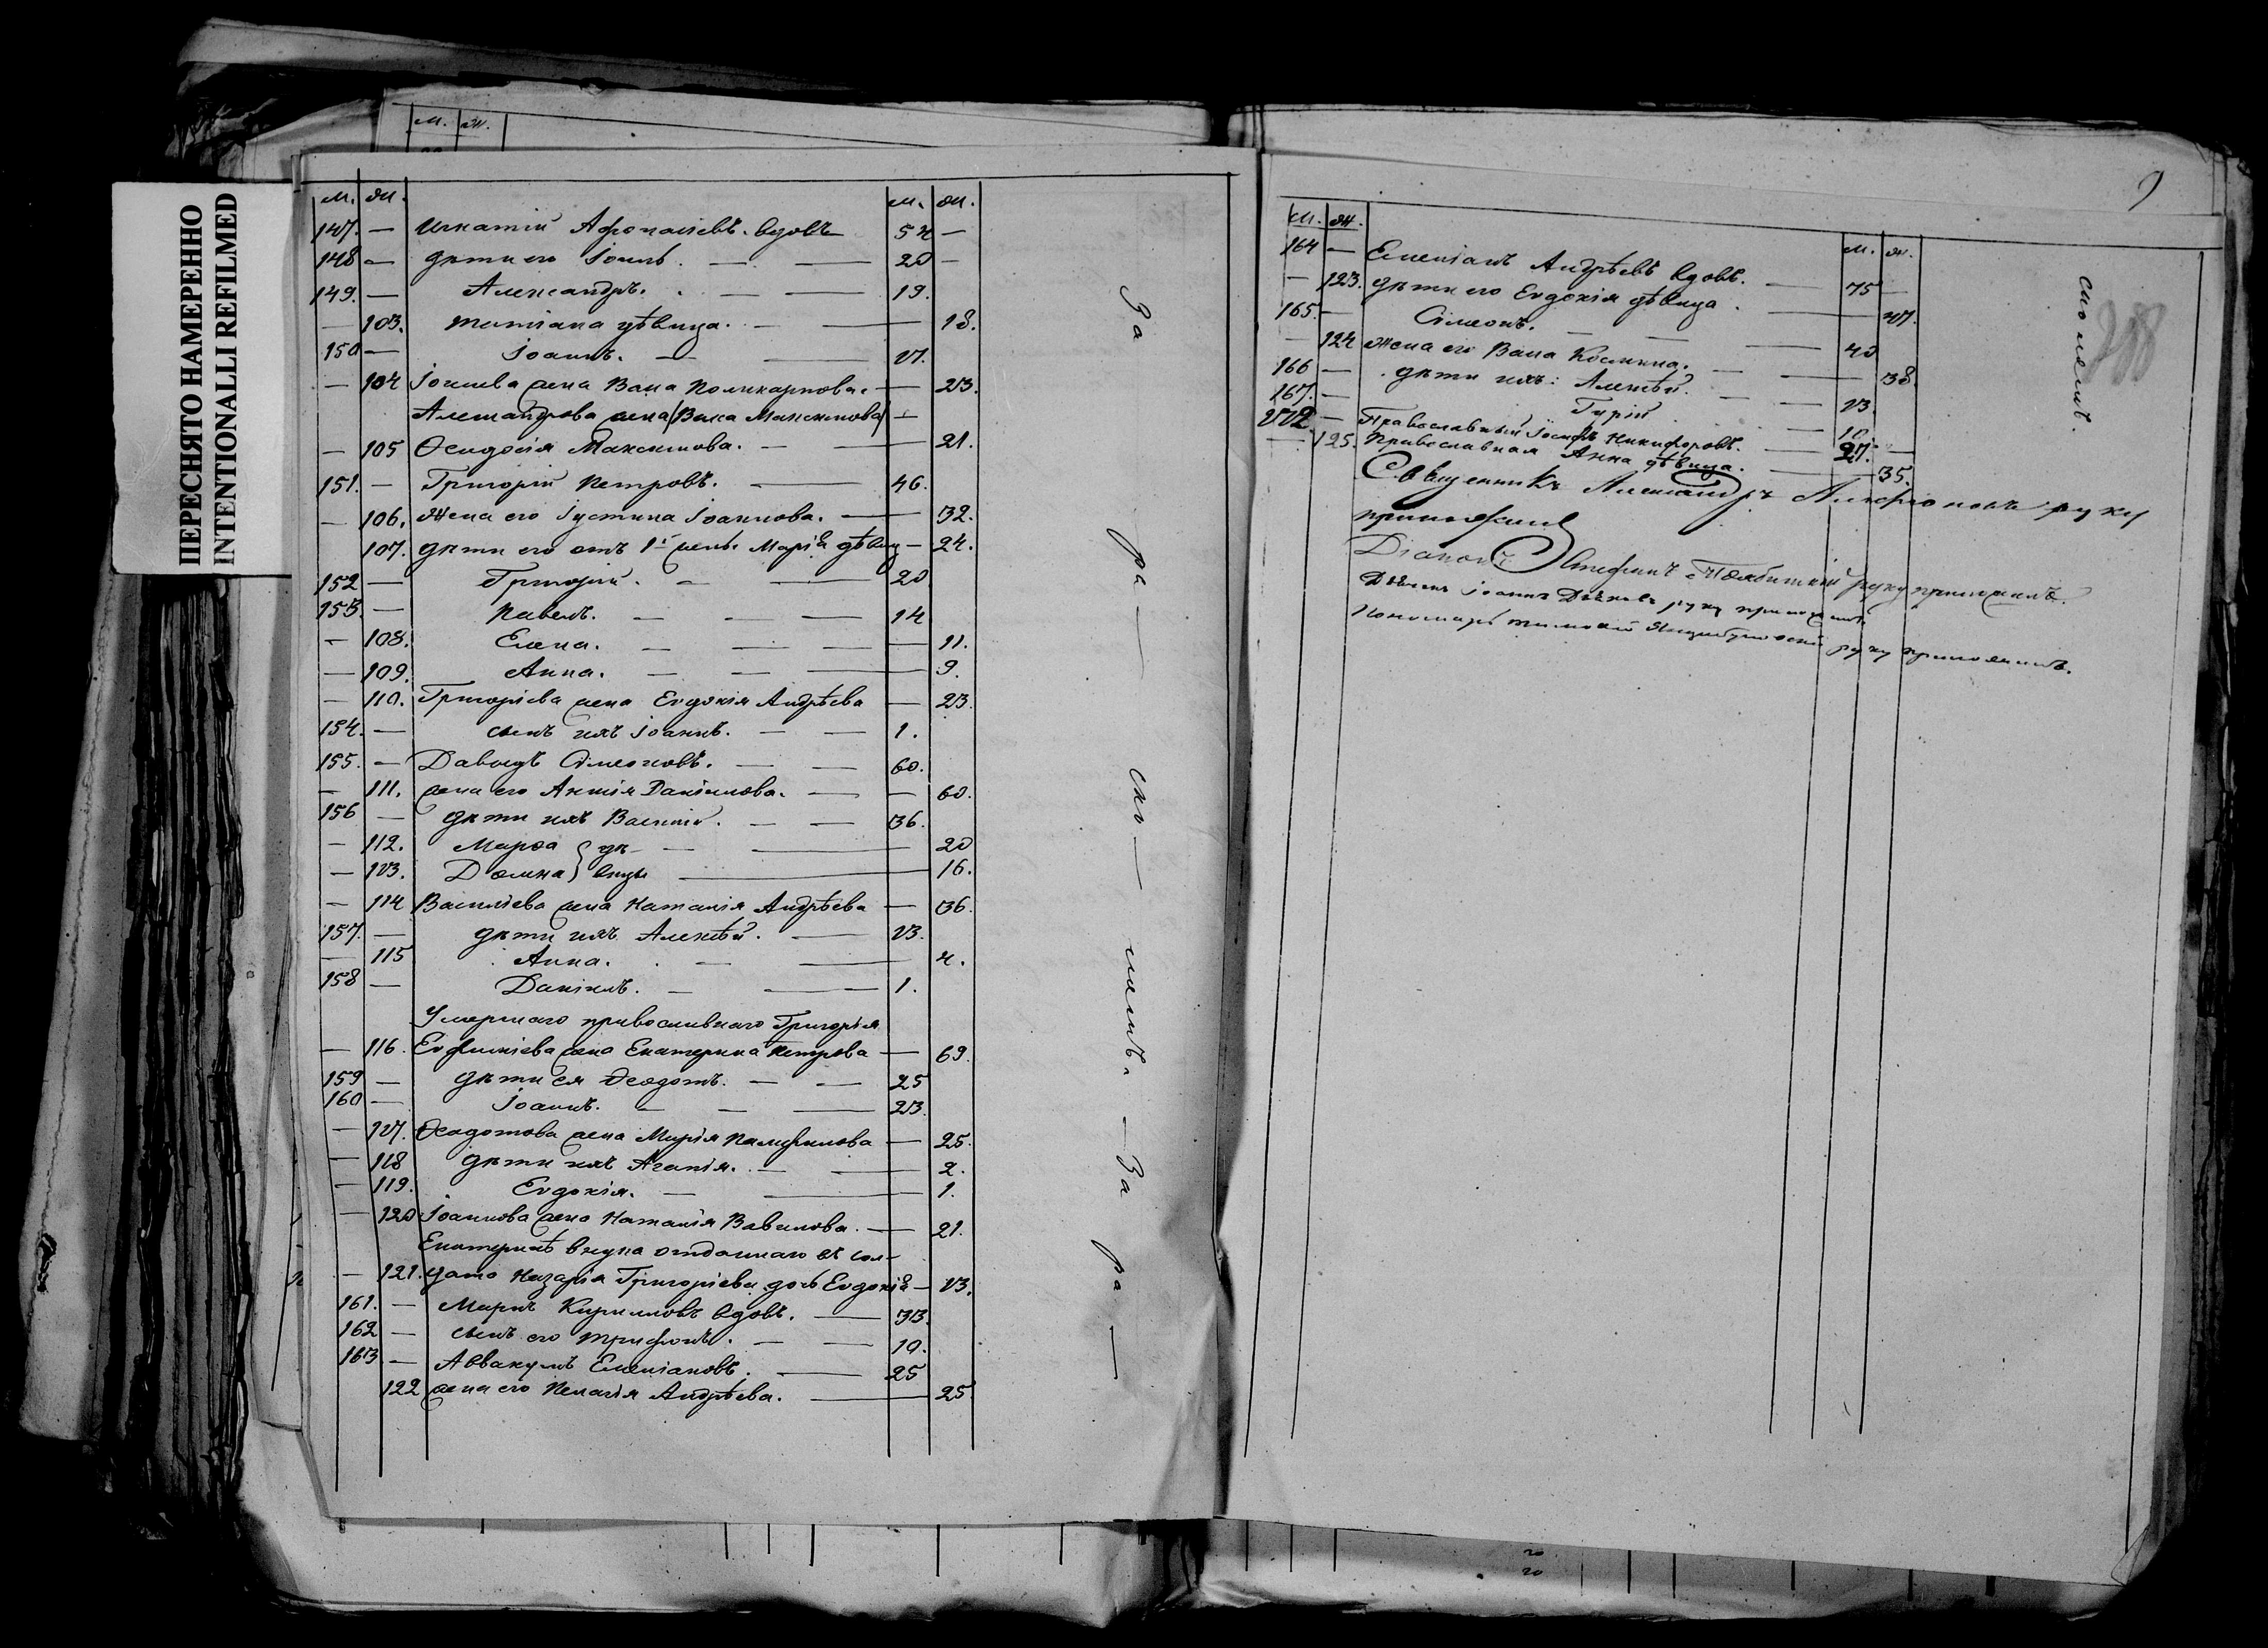 ПЕРЕСНЯТО НАМЕРЕННО
INTENTIONALLI REFILMED
м. ж.
м. ж. м. ж.
147. — Игнатій Афонасіевъ. вдовъ 54 —
148 — дѣти его Іоиль. — — 20 —
149. — Александръ. — — 19.
— 103. Татіана дѣвица. — — 18.
150 — Іоаннъ. — — 17.
— 104 Іоилева жена Васа Поликарпова. — 23.
Александрова жена (Васа Максимова) —
— 105 Ѳеодосія Максимова. — 21.
151. — Григорій Петровъ. — 46.
— 106. Жена его Іустина Іоаннова. — 32.
107. дѣти его отъ 1й жены Марія дѣвиц — 24.
152 — Григорій. — — 20
153. — Павелъ. — — — 14
— 108. Елена. — — — 11.
— 109. Анна. — — 9.
— 110. Григоріева жена Евдокія Андрѣева — 23.
154. — сынъ ихъ Іоаннъ. — — 1.
155. — Давыдъ Сімеоновъ. — — 60.
— 111. жена его Анна Даніилова. — — 60.
156 — дѣти ихъ Василій. — — 36.
— 112. Марѳа } дѣ- — — 20
— 113. Домна } вицы — 16.
— 114 Василіева жена Наталія Андрѣева — 36.
157. — дѣти ихъ Алексѣй. — 13.
— 115 Анна. — — 4.
158 — Даніилъ. — — 1.
Умершаго православнаго Григорія
— 116. Евфиміева жена Екатерина Петрова — 69.
159 — дѣти ея Ѳеодотъ. — — 25
160 — Іоаннъ. — — — 23.
— 117. Ѳеодотова жена Марія Памфилова — 25.
— 118 дѣти ихъ Агапія. — — 2.
— 119. Евдокія. — — 1.
— 120 Іоаннова жена Наталія Вавилова. — 21.
Екатеринѣ внука отданнаго въ сол-
— 121. даты Назарія Григоріева дочь Евдокія — 13.
161. — Маркъ Кирилловъ вдовъ. — 33.
162 — сынъ его Трифонъ. — — 10.
163 — Аввакумъ Емеліановъ. — 25
122 жена его Пелагія Андрѣева. — 25.
За ра — ско — ломъ. — За ра —
9
288
м. ж. м. ж.
164 — Емеліанъ Андрѣевъ вдовъ. — 75 —
— 123. дѣти его Евдокія дѣвица — 47.
165. — Сімеонъ. — — 40
— 124 жена его Васа Космина. — — 38.
166 — дѣти ихъ: Алексѣй. — — 13.
167. — Гурій — 10.
112. — Православный Іосифъ Никифоровъ. — 27. —
— 125. Православная Анна дѣвица. — 35.
сколомъ.
Священникъ Александръ руку
приложилъ
Діаконъ Стефанъ руку приложилъ.
Іоаннъ руку приложилъ.
Пономарь руку приложилъ.